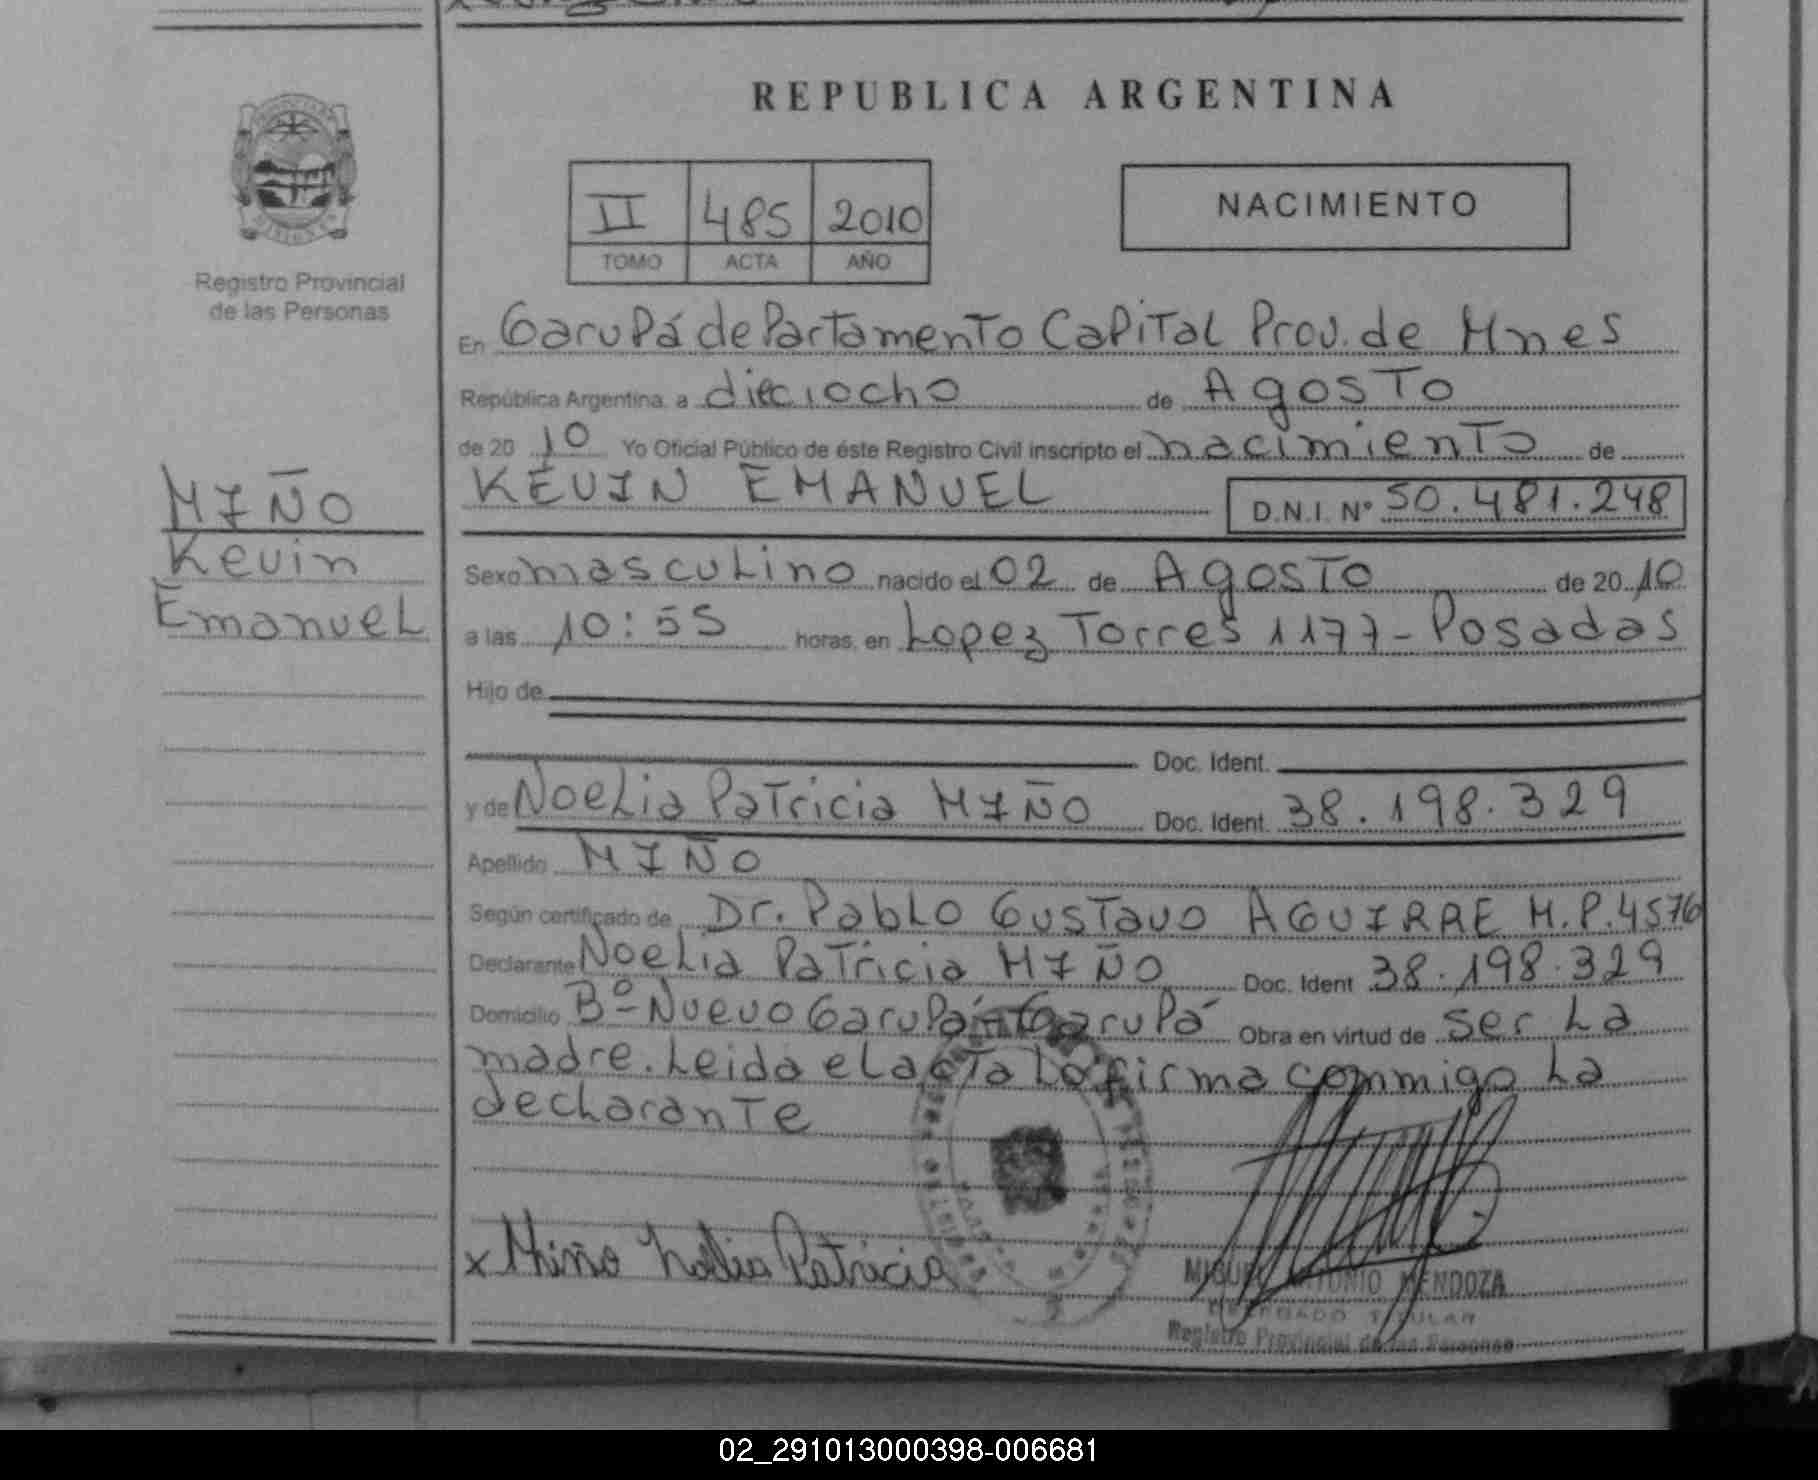 REPUBLICA ARGENTINA
II 485 2010
TOMO ACTA AÑO
NACIMIENTO
Registro Provincial
de las Personas
MIÑO
Kevin
EmanueL
En GaruPá dePartamento CaPiTaL Prov. de Mnes
República Argentina, a dieciocho de AgosTo
de 20 10 Yo Oficial Público de éste Registro Civil inscripto el nacimienTo de
KEVIN EMANUEL D.N.I. Nº 50.481.248
Sexo mascuLino nacido el 02 de AgosTo de 20 10
a las 10:55 horas, en Lopez Torres 1177- Posadas
Hijo de
Doc. Ident.
y de NoeLia PaTricia MIÑO Doc. Ident. 38.198.329
Apellido MIÑO
Según certificado de Dr. PabLo GusTavo AGUIRRE M.P.4576
Declarante NoeLia PaTricia MIÑO Doc. Ident 38.198.329
Domicilio Bº-Nuevo GaruPá-GaruPá Obra en virtud de ser La
madre. Leida eL acTa La firma conmigo La
decLaranTe
x Miño Nolia Patricia
MIGUEL ANTONIO MENDOZA
DELEGADO TITULAR
Registro Provincial de las Personas
02_291013000398-006681